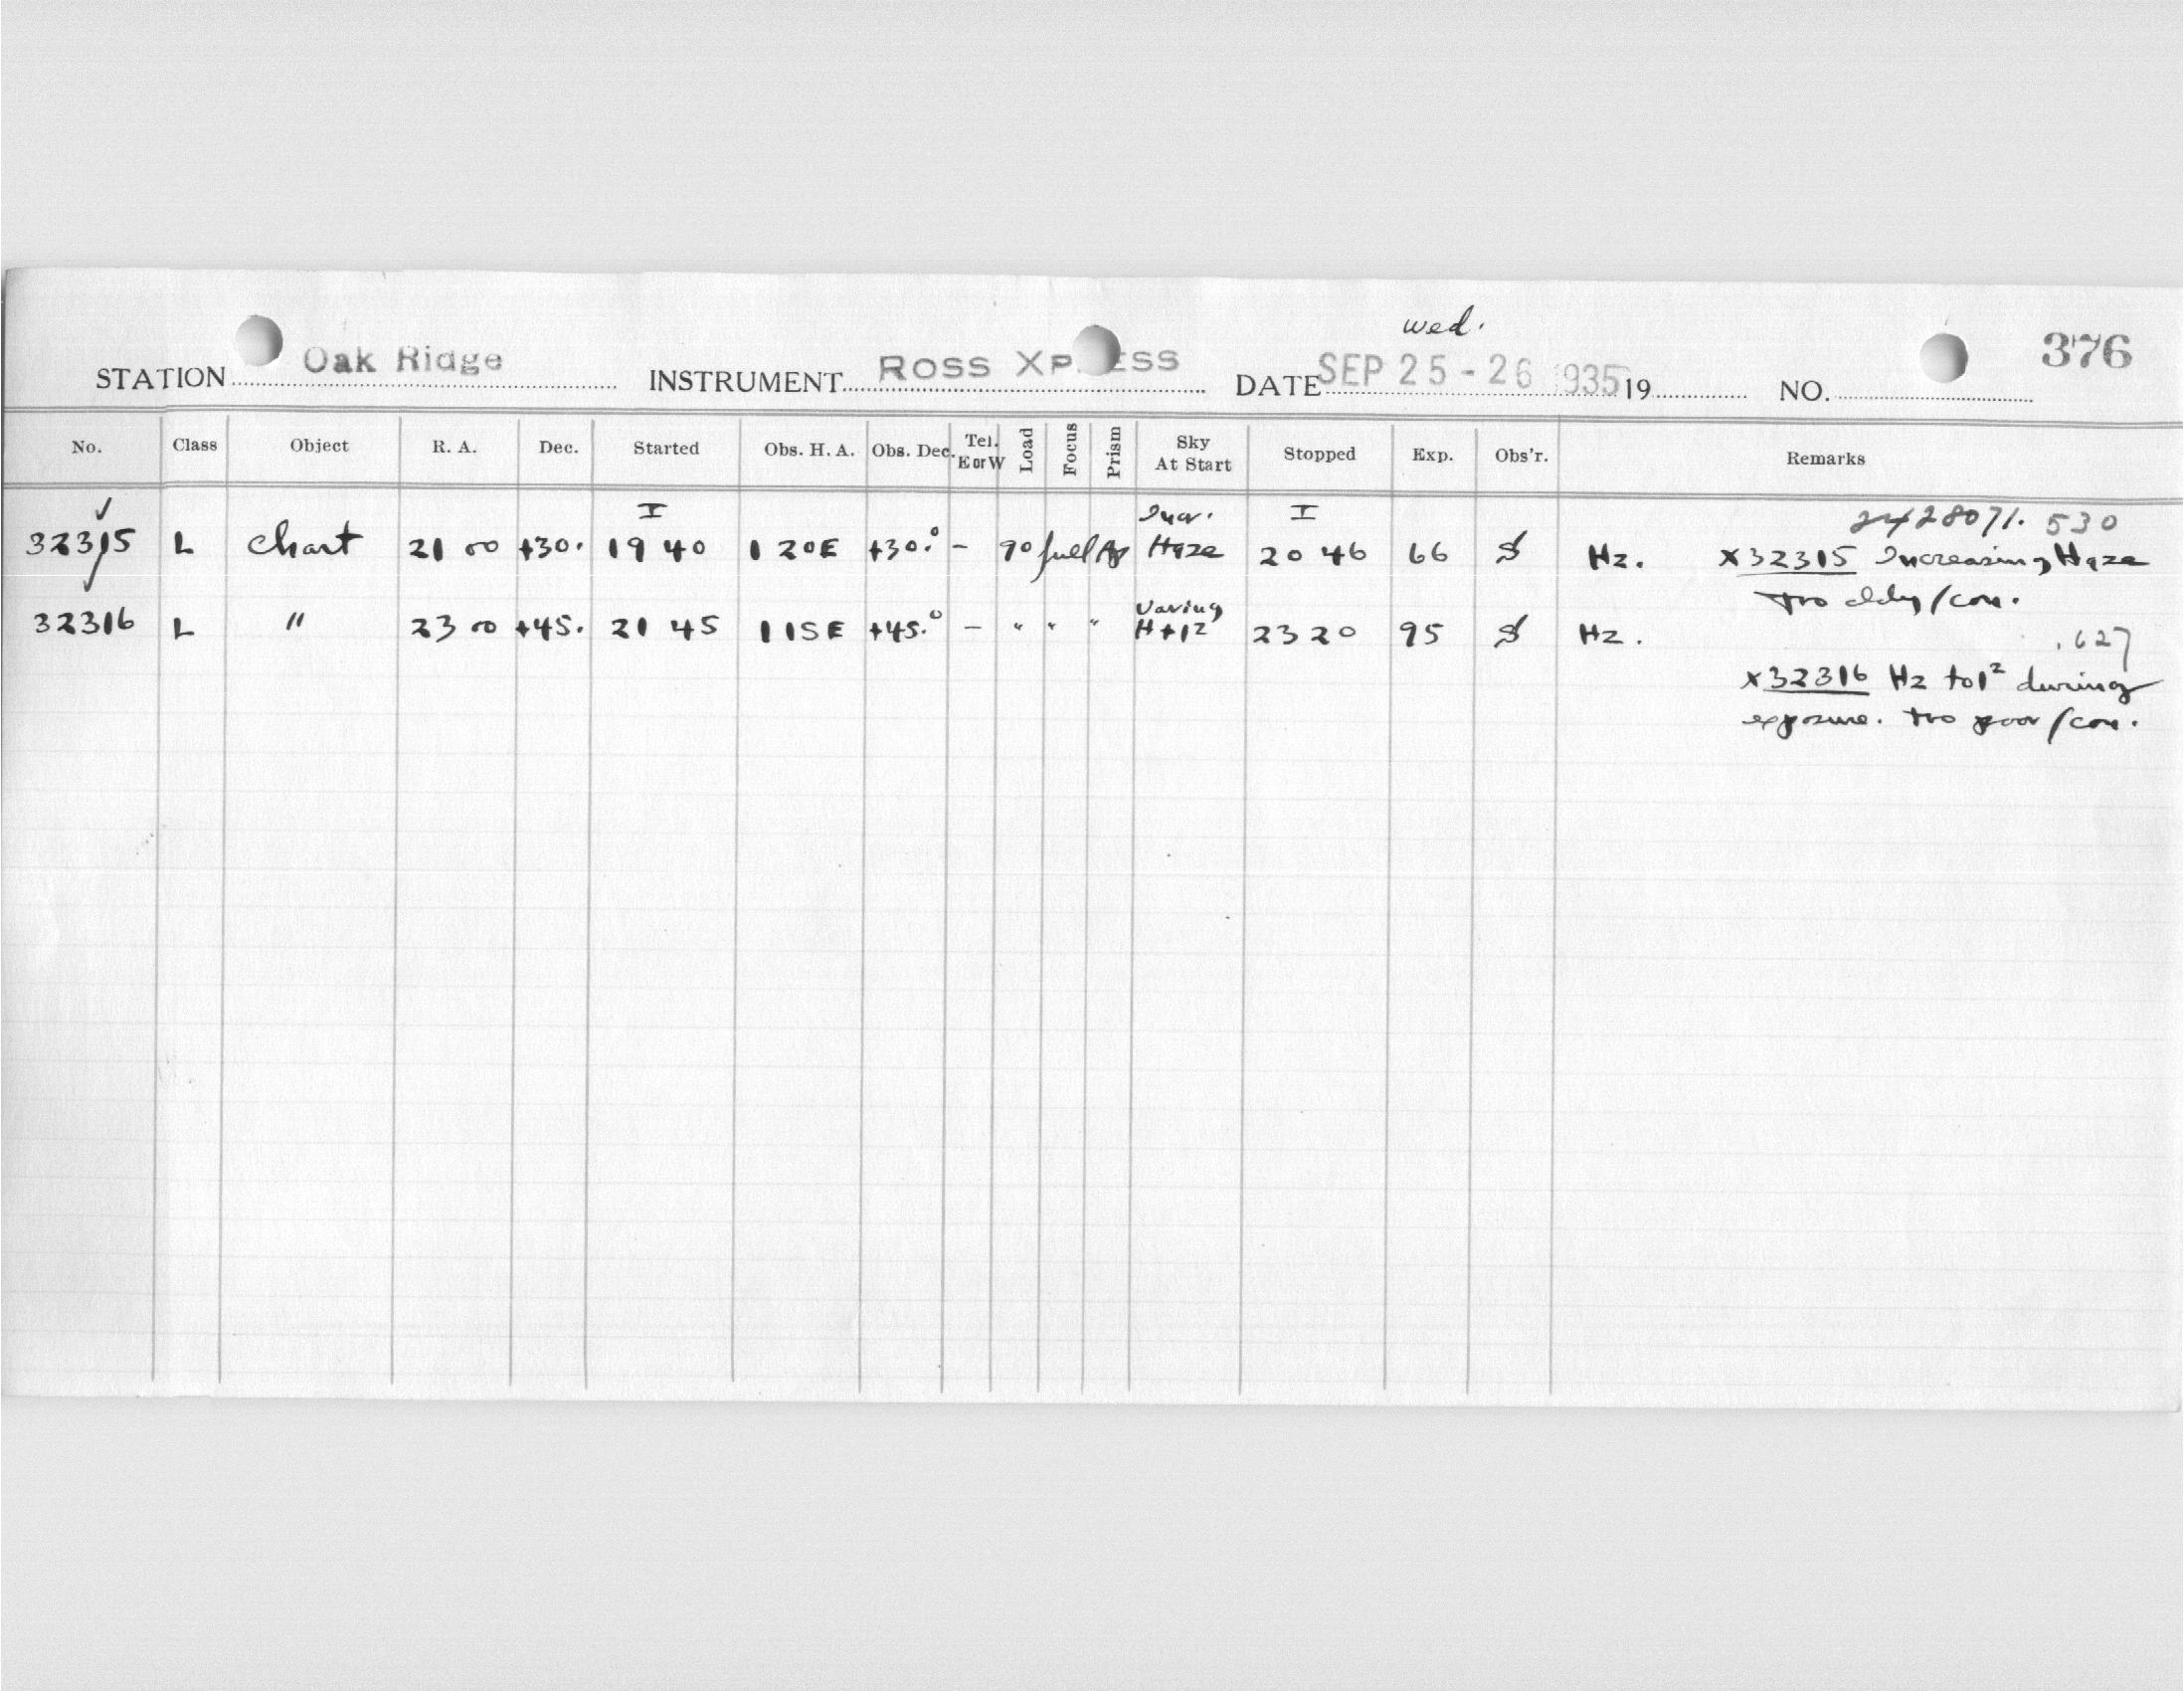 wed.
STATION Oak Ridge INSTRUMENT ROSS XP ESS DATE SEP 25-26 1935 19 NO. 376
No. Class Object R. A. Dec. Started Obs. H. A. Obs. Dec. Tel. E or W Load Focus Prism Sky At Start Stopped Exp. Obs'r. Remarks
I Incr. I 2428071.530
32315 L Chart 21 00 +30. 19 40 1 20E +30.° - 90 full Ap Haze 20 46 66 Hz. X32315 Increasing Haze
too /con.
Varing
32316 L " 23 00 +45. 21 45 1 15E +45.° - " " " H+1² 23 20 95 Hz. .627
X32316 Hz to 1² during
exposure. too poor/con.